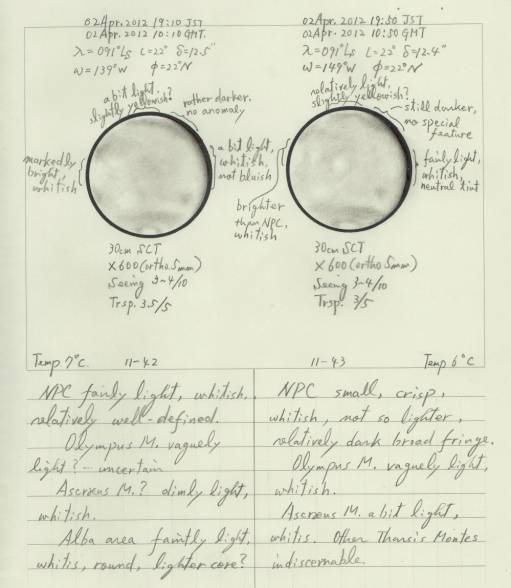 02 Apr. 2012 19:10 JST
02 Apr. 2012 10:10 GMT.
λ = 091° Ls ι = 22° δ = 12.5"
ω = 139° W φ = 22° N
a bit light,
slightly yellowish?
rather darker,
no anomaly
markedly
bright,
whitish
a bit light,
whitish,
not bluish
30cm SCT
×600 (ortho. 5mm)
Seeing 3~4/10
Trsp. 3.5/5
Temp 7°C.
11-42
02 Apr. 2012 19:50 JST
02 Apr. 2012 10:50 GMT
λ = 091° Ls ι = 22° δ = 12.4"
ω = 149° W φ = 22° N
relatively light,
slightly yellowish?
still darker,
no special
feature
brighter
than NPC,
whitish
fairly light,
whitish,
neutral tint
30cm SCT
×600 (ortho. 5mm)
Seeing 3~4/10
Trsp. 3/5
11-43
Temp 6°C
NPC fairly light, whitish,
relatively well-defined.
Olympus M. vaguely
light? - uncertain
Ascræus M.? dimly light,
whitish.
Alba area faintly light,
whitis, round, lighter core?
NPC small, crisp,
whitish, not so lighter,
relatively dark broad fringe.
Olympus M. vaguely light,
whitish.
Ascræus M. a bit light,
whitis. Other Tharsis Montes
indiscernable.